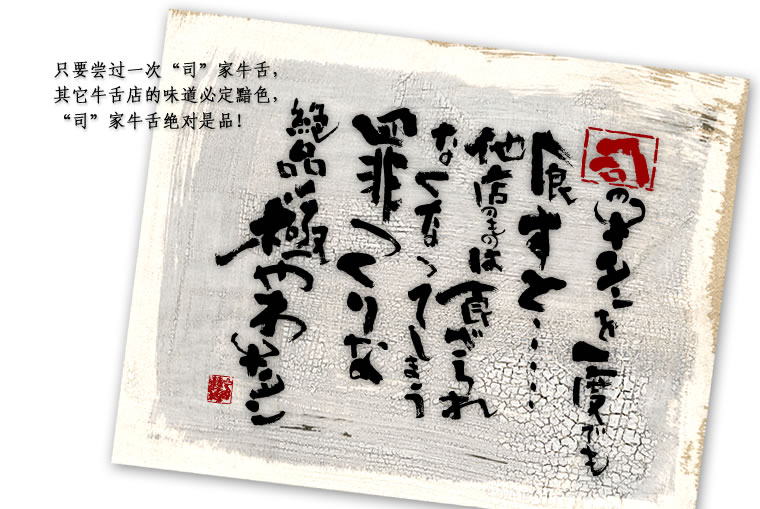 只要尝过一次“司”家牛舌，
其它牛舌店的味道必定黯色，
“司”家牛舌绝对是品！
司のタンを一度でも
食すと・・・・・・
他店のものは食べられ
なくなってしまう
罪つくりな
絶品極やわタン